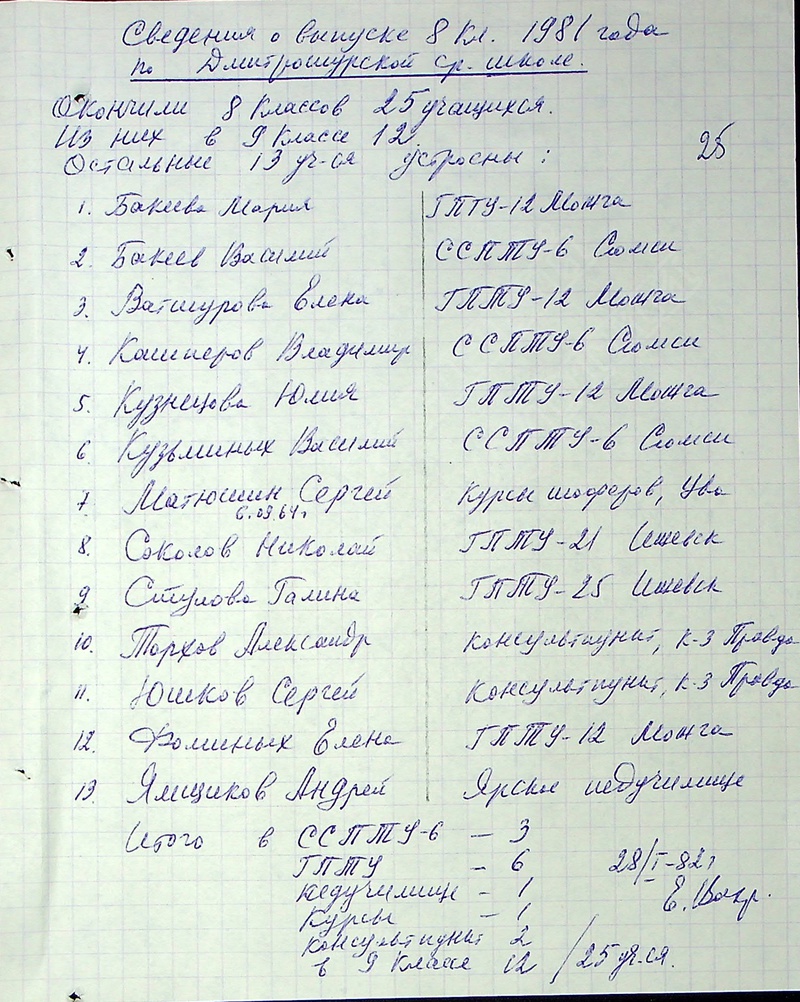 Сведения о выпуске 8 кл. 1981 года
по Дмитрошурской ср. школе.
Окончили 8 классов 25 учащихся.
Из них в 9 классе 12.
Остальные 13 уч-ся устроены:
25
1. Бакеева Мария ГПТУ-12 Можга
2. Бакеев Василий ССПТУ-6 Сюмси
3. Ватшурова Елена ГПТУ-12 Можга
4. Кашперов Владимир ССПТУ-6 Сюмси
5. Кузнецова Юлия ГПТУ-12 Можга
6. Кузьминых Василий ССПТУ-6 Сюмси
7. Матюшин Сергей Курсы шоферов, Ува
6.09.64г
8. Соколов Николай ГПТУ-21 Ижевск
9. Стулова Галина ГПТУ-25 Ижевск
10. Торхов Александр консультпункт, к-з Правда
11. Юшков Сергей консультпункт, к-з Правда
12. Фоминых Елена ГПТУ-12 Можга
13. Ямщиков Андрей Ярское педучилище
Итого в ССПТУ-6 — 3
ГПТУ — 6 28/I-82г
педучилище — 1 Е.
Курсы — 1
консультпункт 2
в 9 классе 12 / 25 уч-ся.